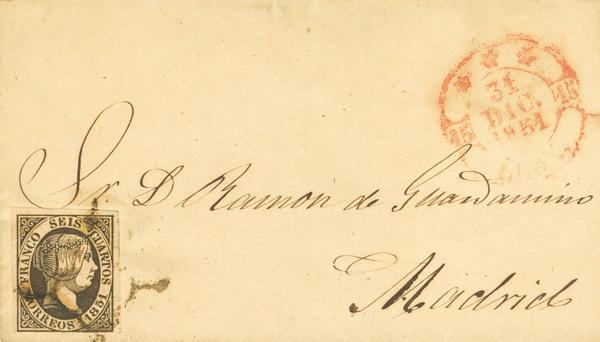 31
DIC.
1851
15 15
Sr. D. Ramon de Guardamino
Madrid
FRANCO SEIS CUARTOS
CORREOS 1851